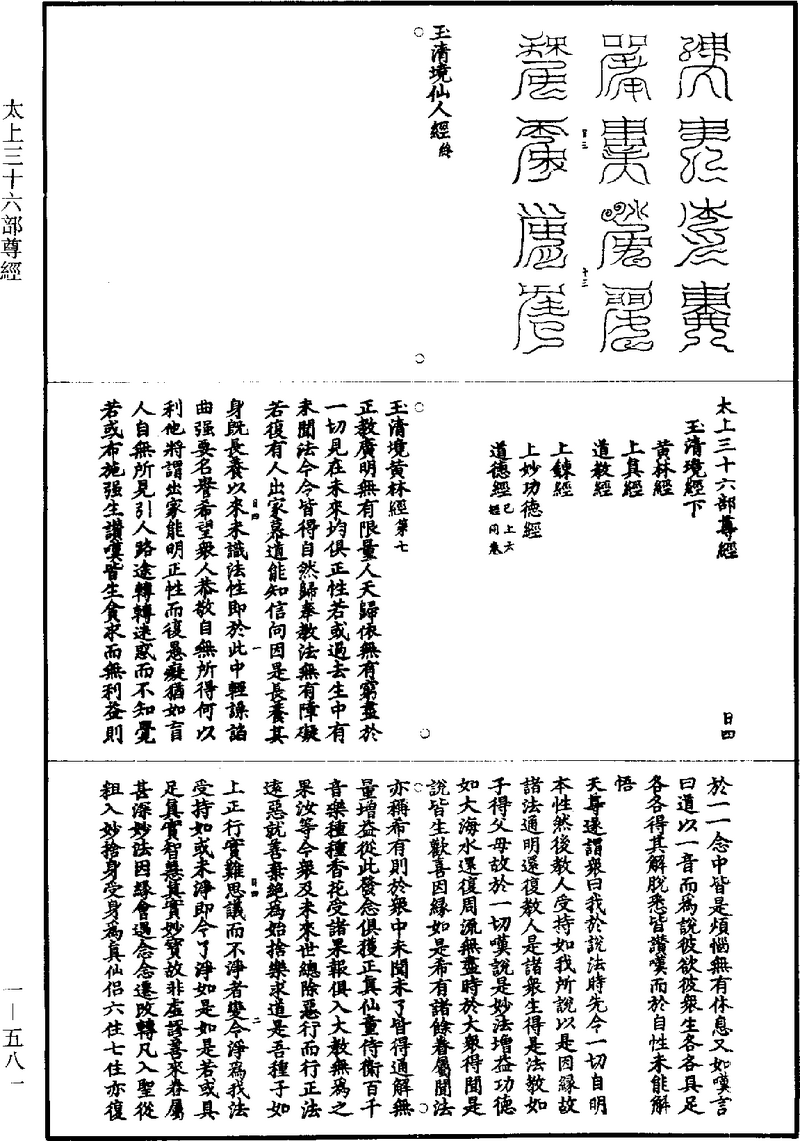 太上三十六部尊經
玉清境仙人經終
太上三十六部尊經
日四
玉清境經下
黄林經
上真經
道教經
上鍊經
上妙功德經
道德經已上六經同卷
玉清境黄林經第七
正教廣明無有限量人天歸依無有窮盡於
一切見在未來均俱正性若或過去生中有
未聞法令今皆得自然歸奉教法無有障礙
若復有人出家慕道能知信問因是長養其
身既長養以來未識法性即於此中輕譟諂
曲强要名譽希望衆人恭敬自無所得何以
利他將謂出家能明正性而復愚癡猶如盲
人自無所見引人路途轉轉迷惑而不知覺
若或布施强生讃嘆皆生貪求而無利益則
於一一念中皆是煩惱無有休息又如嘆言
曰道以一音而爲説彼欲彼衆生各各具足
各各得其解脱悉皆讃嘆而於自性未能解
悟
天尊遂謂衆曰我於説法時先令一切自明
本性然後教人受持如我所説以是因緣故
諸法通明還復教人是諸衆生得是法教如
子得父母故於一切嘆説是妙法增益功德
如大海水還復周流無盡時於大衆得聞是
説皆生歡喜因緣如是希有諸餘眷屬聞法
亦稱希有則於衆中未聞未了皆得通解無
量增益從此發念俱獲正真仙童侍衛百千
音樂種種香花受諸果報俱入大教無爲之
果汝等今衆及未來世總除惡行而行正法
遠惡就善棄絶爲始捨樂求道是吾種子如
上正行實難思議而不淨者變令淨爲我法
受持如或未淨即令了淨如是如是若或具
足真實智慧真實妙寳故非虚謬善來眷屬
甚深妙法因緣會遇念念遷改轉凡入聖從
粗入妙捨身受身爲真仙侣六住七住亦復
一—五八一